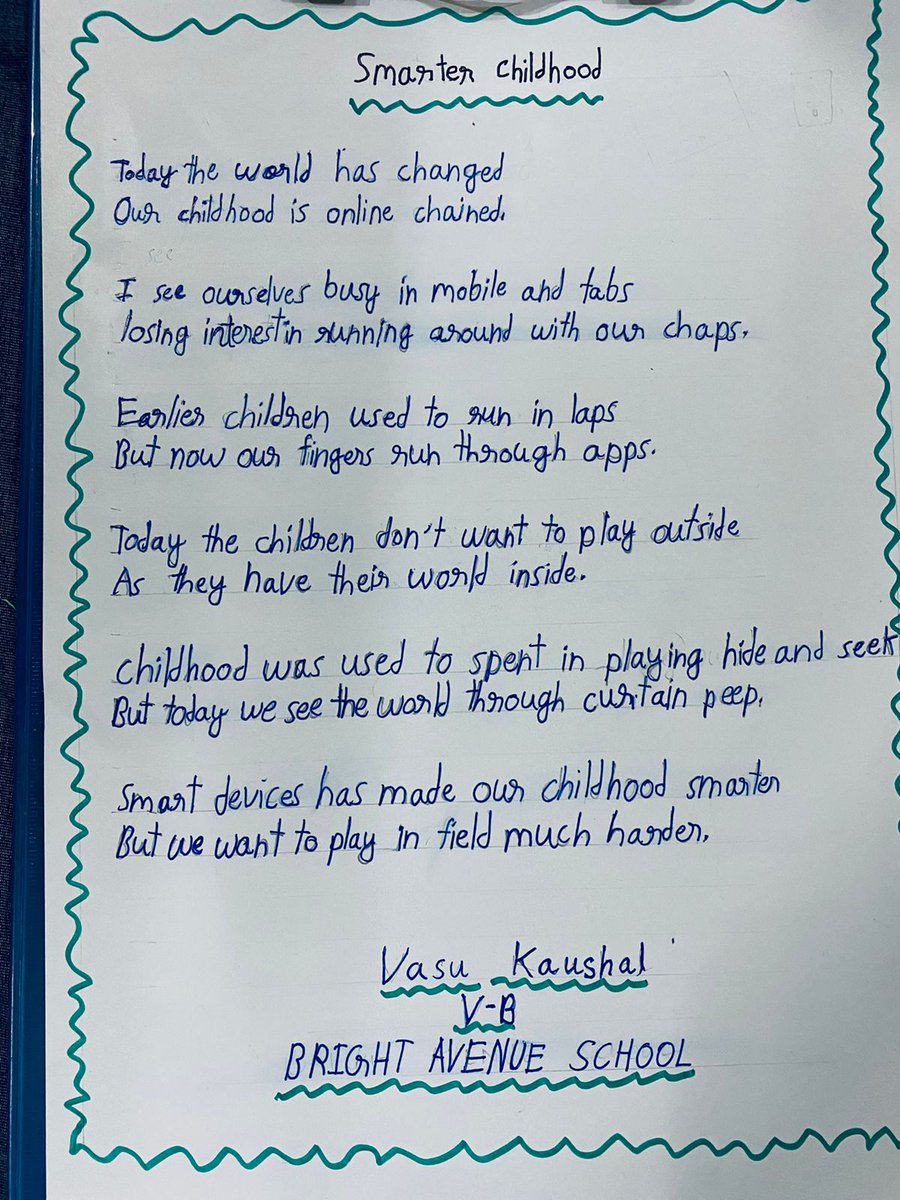 Smarter childhood
Today the world has changed
Our childhood is online chained.
see
I see ourselves busy in mobile and tabs
losing interest in running around with our chaps.
Earlier children used to run in laps
But now our fingers run through apps.
Today the children don't want to play outside
As they have their world inside.
Childhood was used to spent in playing hide and seek
But today we see the world through curtain peep.
Smart devices has made our childhood smarter
But we want to play in field much harder.
Vasu Kaushal
V-B
BRIGHT AVENUE SCHOOL